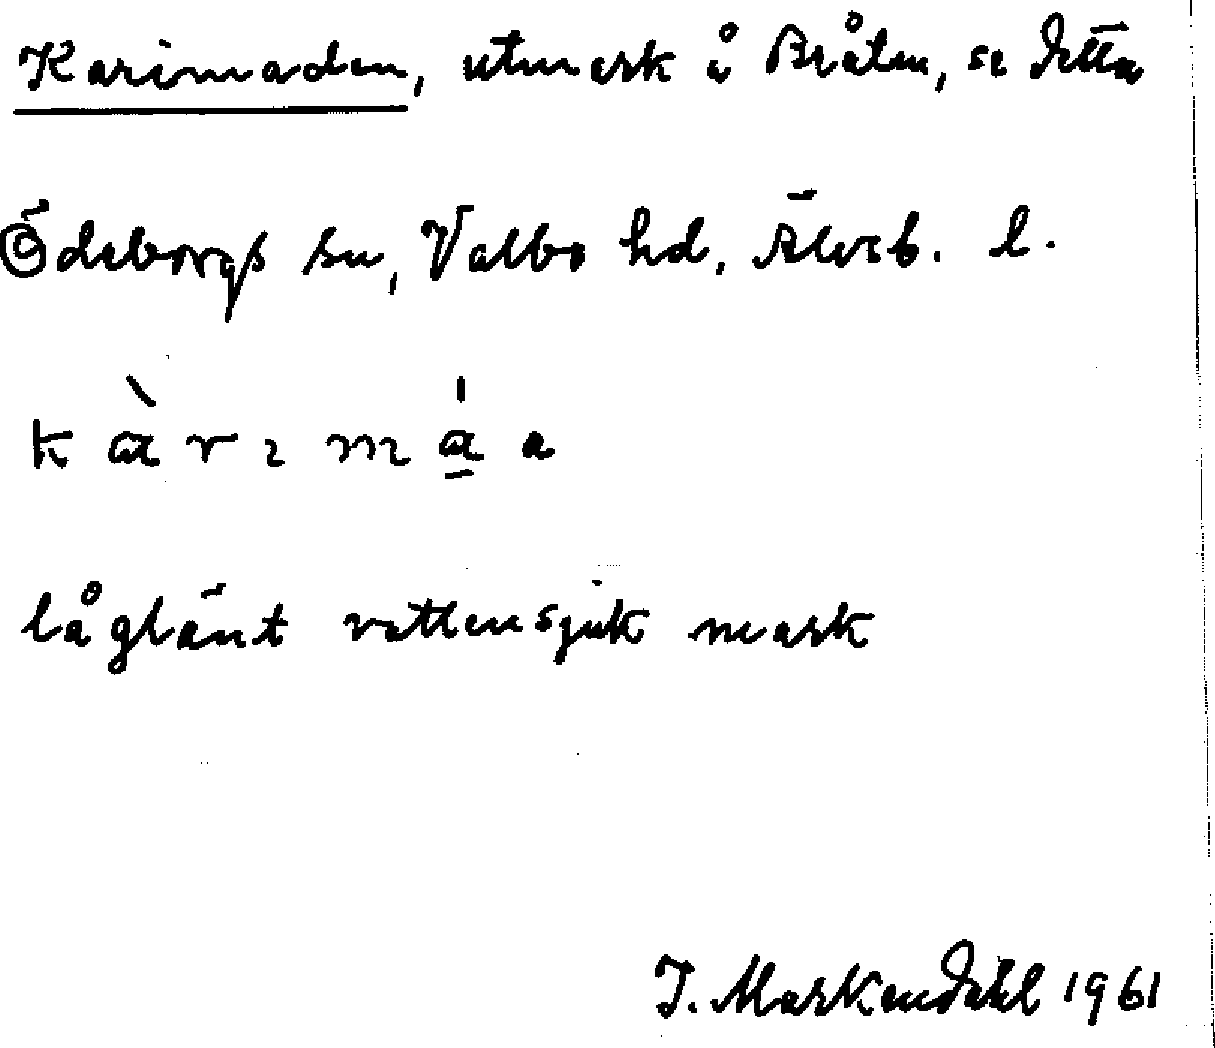 Karimaden, utmark å Bråten, se detta
Ödeborgs sn, Valbo hd, Älvsb. l.
k à r ɩ m á a
låglänt vattensjuk mark
J. Markendahl 1961